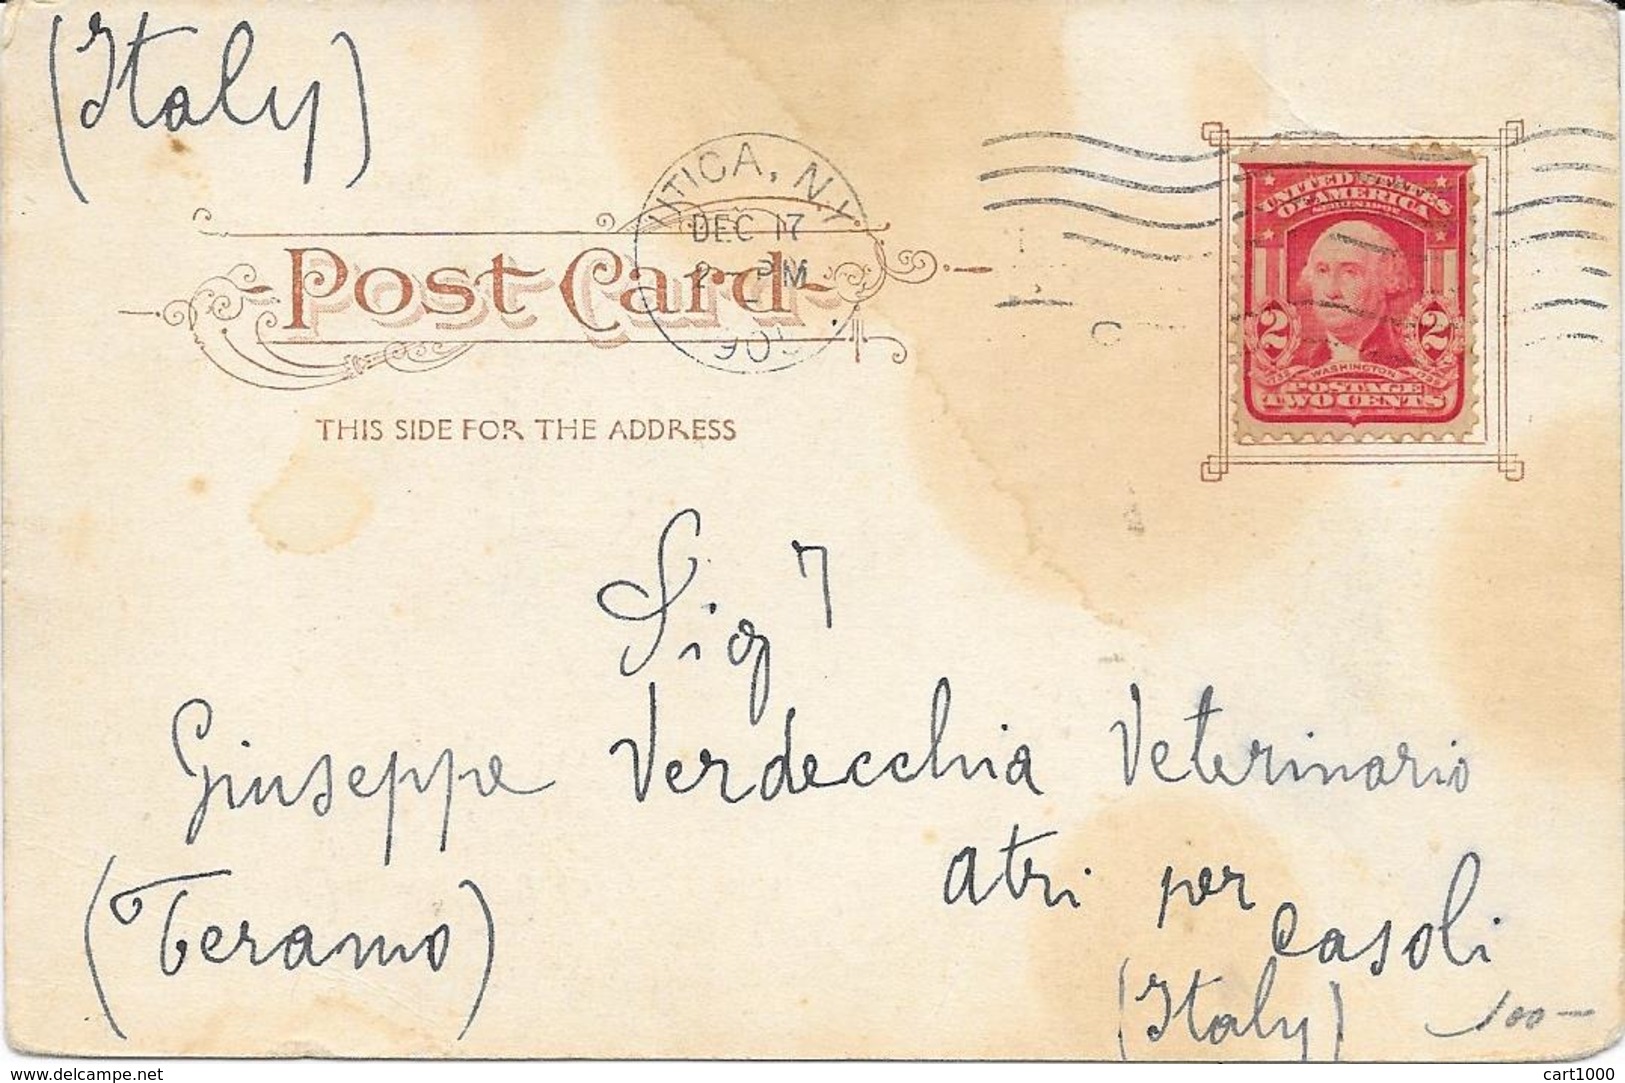 (Italy)
UTICA, N.Y.
DEC 17
2 - PM
Post Card
THIS SIDE FOR THE ADDRESS
UNITED STATES
OF AMERICA
SERIES 1902
2 2
1732 WASHINGTON 1799
POSTAGE
TWO CENTS
Sig r
Giuseppe Verdecchia Veterinario
Atri per
Casoli
(Teramo)
(Italy)
100 —
delcampe.net
cart1000